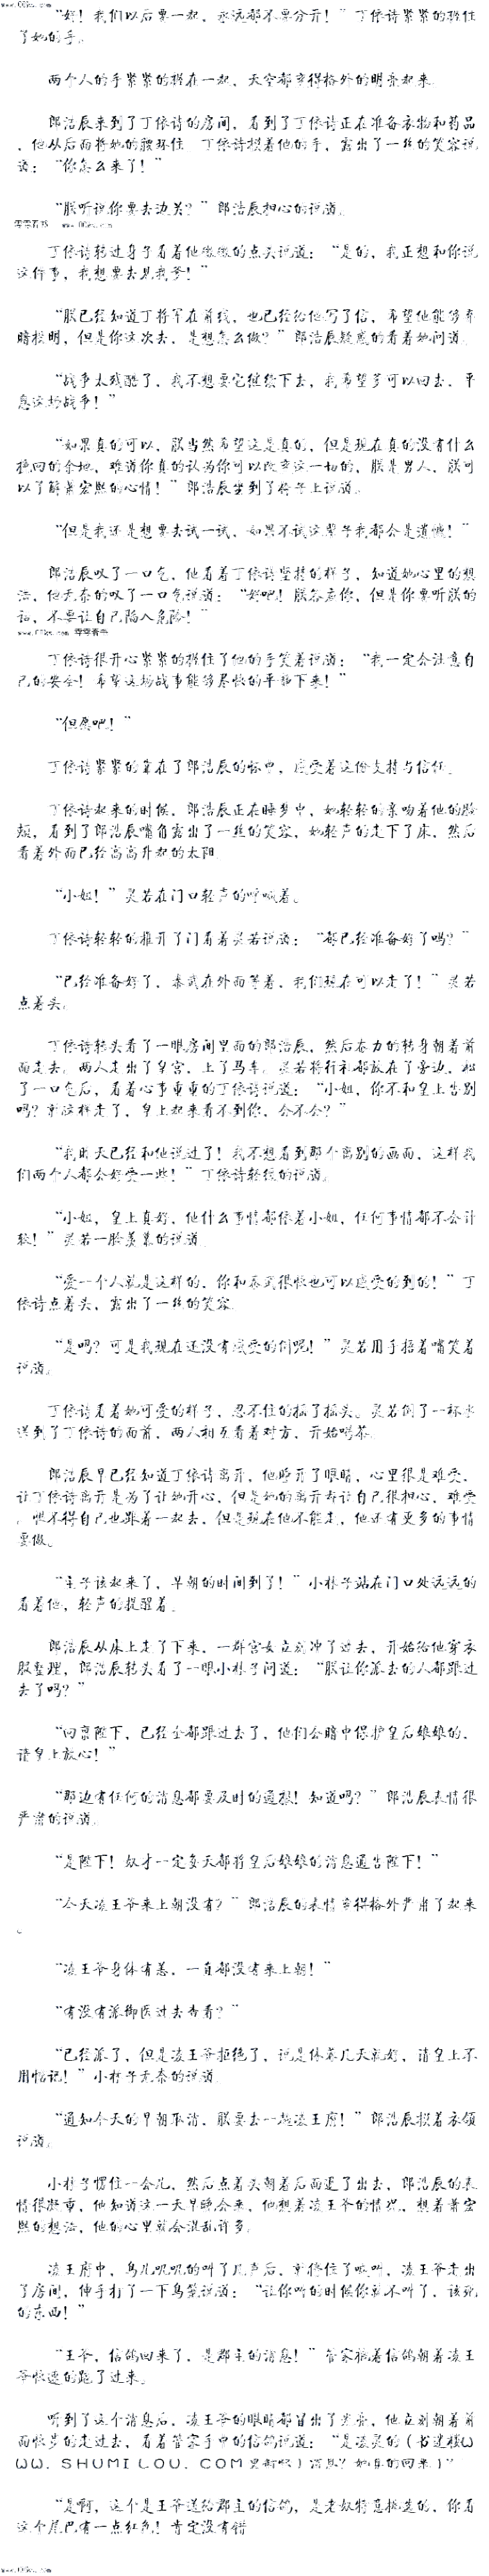 www.00ks.com
“好！我们以后要一起，永远都不要分开！”丁依诗紧紧的握住
了她的手。
两个人的手紧紧的握在一起，天空都变得格外的明亮起来。
郎浩辰来到了丁依诗的房间，看到了丁依诗正在准备衣物和药品
，他从后面将她的腰环住，丁依诗摸着他的手，露出了一丝的笑容说
道：“你怎么来了！”
“朕听说你要去边关？”郎浩辰担心的说道。
零零看书 www.00ks.com
丁依诗转过身子看着他微微的点头说道：“是的，我正想和你说
这件事，我想要去见我爹！”
“朕已经知道丁将军在前线，也已经给他写了信，希望他能够弃
暗投明，但是你这次去，是想怎么做？”郎浩辰疑惑的看着她问道。
“战争太残酷了，我不想要它继续下去，我希望爹可以回去，平
息这场战争！”
“如果真的可以，朕当然希望这是真的，但是现在真的没有什么
挽回的余地，难道你真的认为你可以改变这一切的，朕是男人，朕可
以了解萧宏熙的心情！”郎浩辰坐到了椅子上说道。
“但是我还是想要去试一试，如果不试这辈子我都会是遗憾！”
郎浩辰叹了一口气，他看着丁依诗坚持的样子，知道她心里的想
法，他无奈的叹了一口气说道：“好吧！朕答应你，但是你要听朕的
话，不要让自己陷入危险！”
www.00ks.com 零零看书
丁依诗很开心紧紧的握住了他的手笑着说道：“我一定会注意自
己的安全！希望这场战事能够尽快的平静下来！”
“但愿吧！”
丁依诗紧紧的靠在了郎浩辰的怀中，感受着这份支持与信任。
丁依诗起来的时候，郎浩辰正在睡梦中，她轻轻的亲吻着他的脸
颊，看到了郎浩辰嘴角露出了一丝的笑容，她轻声的走下了床，然后
看着外面已经高高升起的太阳。
“小姐！”灵若在门口轻声的呼唤着。
丁依诗轻轻的推开了门看着灵若说道：“都已经准备好了吗？”
“已经准备好了，泰武在外面等着，我们现在可以走了！”灵若
点着头。
丁依诗转头看了一眼房间里面的郎浩辰，然后吃力的转身朝着前
面走去，两人走出了皇宫，上了马车，灵若将行礼都放在了旁边，松
了一口气后，看着心事重重的丁依诗说道：“小姐，你不和皇上告别
吗？就这样走了，皇上起来看不到你，会不会？”
“我昨天已经和他说过了！我不想看到那个离别的画面，这样我
们两个人都会好受一些！”丁依诗轻缓的说道。
“小姐，皇上真好，他什么事情都依着小姐，任何事情都不会计
较！”灵若一脸羡慕的说道。
“爱一个人就是这样的，你和泰武很快也可以感受的到的！”丁
依诗点着头，露出了一丝的笑容。
“是吗？可是我现在还没有感受的到呢！”灵若用手捂着嘴笑着
说道。
丁依诗看着她可爱的样子，忍不住的摇了摇头。灵若倒了一杯水
送到了丁依诗的面前，两人相互看着对方，开始喝茶。
郎浩辰早已经知道丁依诗离开，他睁开了眼睛，心里很是难受，
让丁依诗离开是为了让她开心，但是她的离开却让自己很担心，难受
，恨不得自己也跟着一起去，但是现在他不能走，他还有更多的事情
要做。
“主子该起来了，早朝的时间到了！”小林子站在门口处远远的
看着他，轻声的提醒着。
郎浩辰从床上走了下来，一群宫女立刻冲了过去，开始给他穿衣
服整理，郎浩辰转头看了一眼小林子问道：“朕让你派去的人都跟过
去了吗？”
“回禀陛下，已经全部跟过去了，他们会暗中保护皇后娘娘的，
请皇上放心！”
“那边有任何的消息都要及时的通报！知道吗？”郎浩辰表情很
严肃的说道。
“是陛下！奴才一定每天都将皇后娘娘的消息通告陛下！”
“今天凌王爷来上朝没有？”郎浩辰的表情变得格外严肃了起来
。
“凌王爷身体有恙，一直都没有来上朝！”
“有没有派御医过去查看？”
“已经派了，但是凌王爷拒绝了，说是休养几天就好，请皇上不
用惦记！”小林子无奈的说道。
“通知今天的早朝取消，朕要去一趟凌王府！”郎浩辰摸着衣领
说道。
小林子愣住一会儿，然后点着头朝着后面退了出去，郎浩辰的表
情很凝重，他知道这一天早晚会来，他想着凌王爷的情况，想着萧宏
熙的想法，他的心里就会混乱许多。
凌王府中，鸟儿叽叽的叫了几声后，就停住了喊叫，凌王爷走出
了房间，伸手打了一下鸟笼说道：“让你叫的时候你就不叫了，该死
的东西！”
“王爷，信鸽回来了，是郡主的消息！”管家抱着信鸽朝着凌王
爷快速的跑了过来。
听到了这个消息后，凌王爷的眼睛都冒出了光亮，他立刻朝着前
面快步的走过去，看着管家手中的信鸽说道：“是凌灵的（书迷楼W
WW．SHUMILOU．COM更新快）消息？她真的回来）”
“是啊，这个是王爷送给郡主的信鸽，是老奴特意挑选的，你看
这个尾巴有一点红色！肯定没有错
www.00ks.com